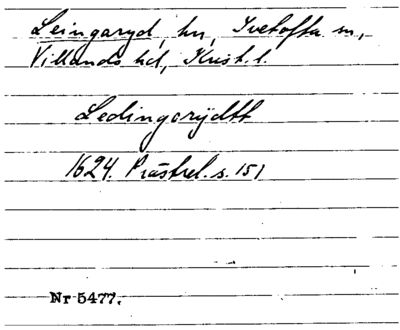 Leingaryd, hn, Ivetofta sn,
Villands hd, Krist. l.
Ledingarÿdtt
1624. Prästrel. s. 151
Nr 5477.